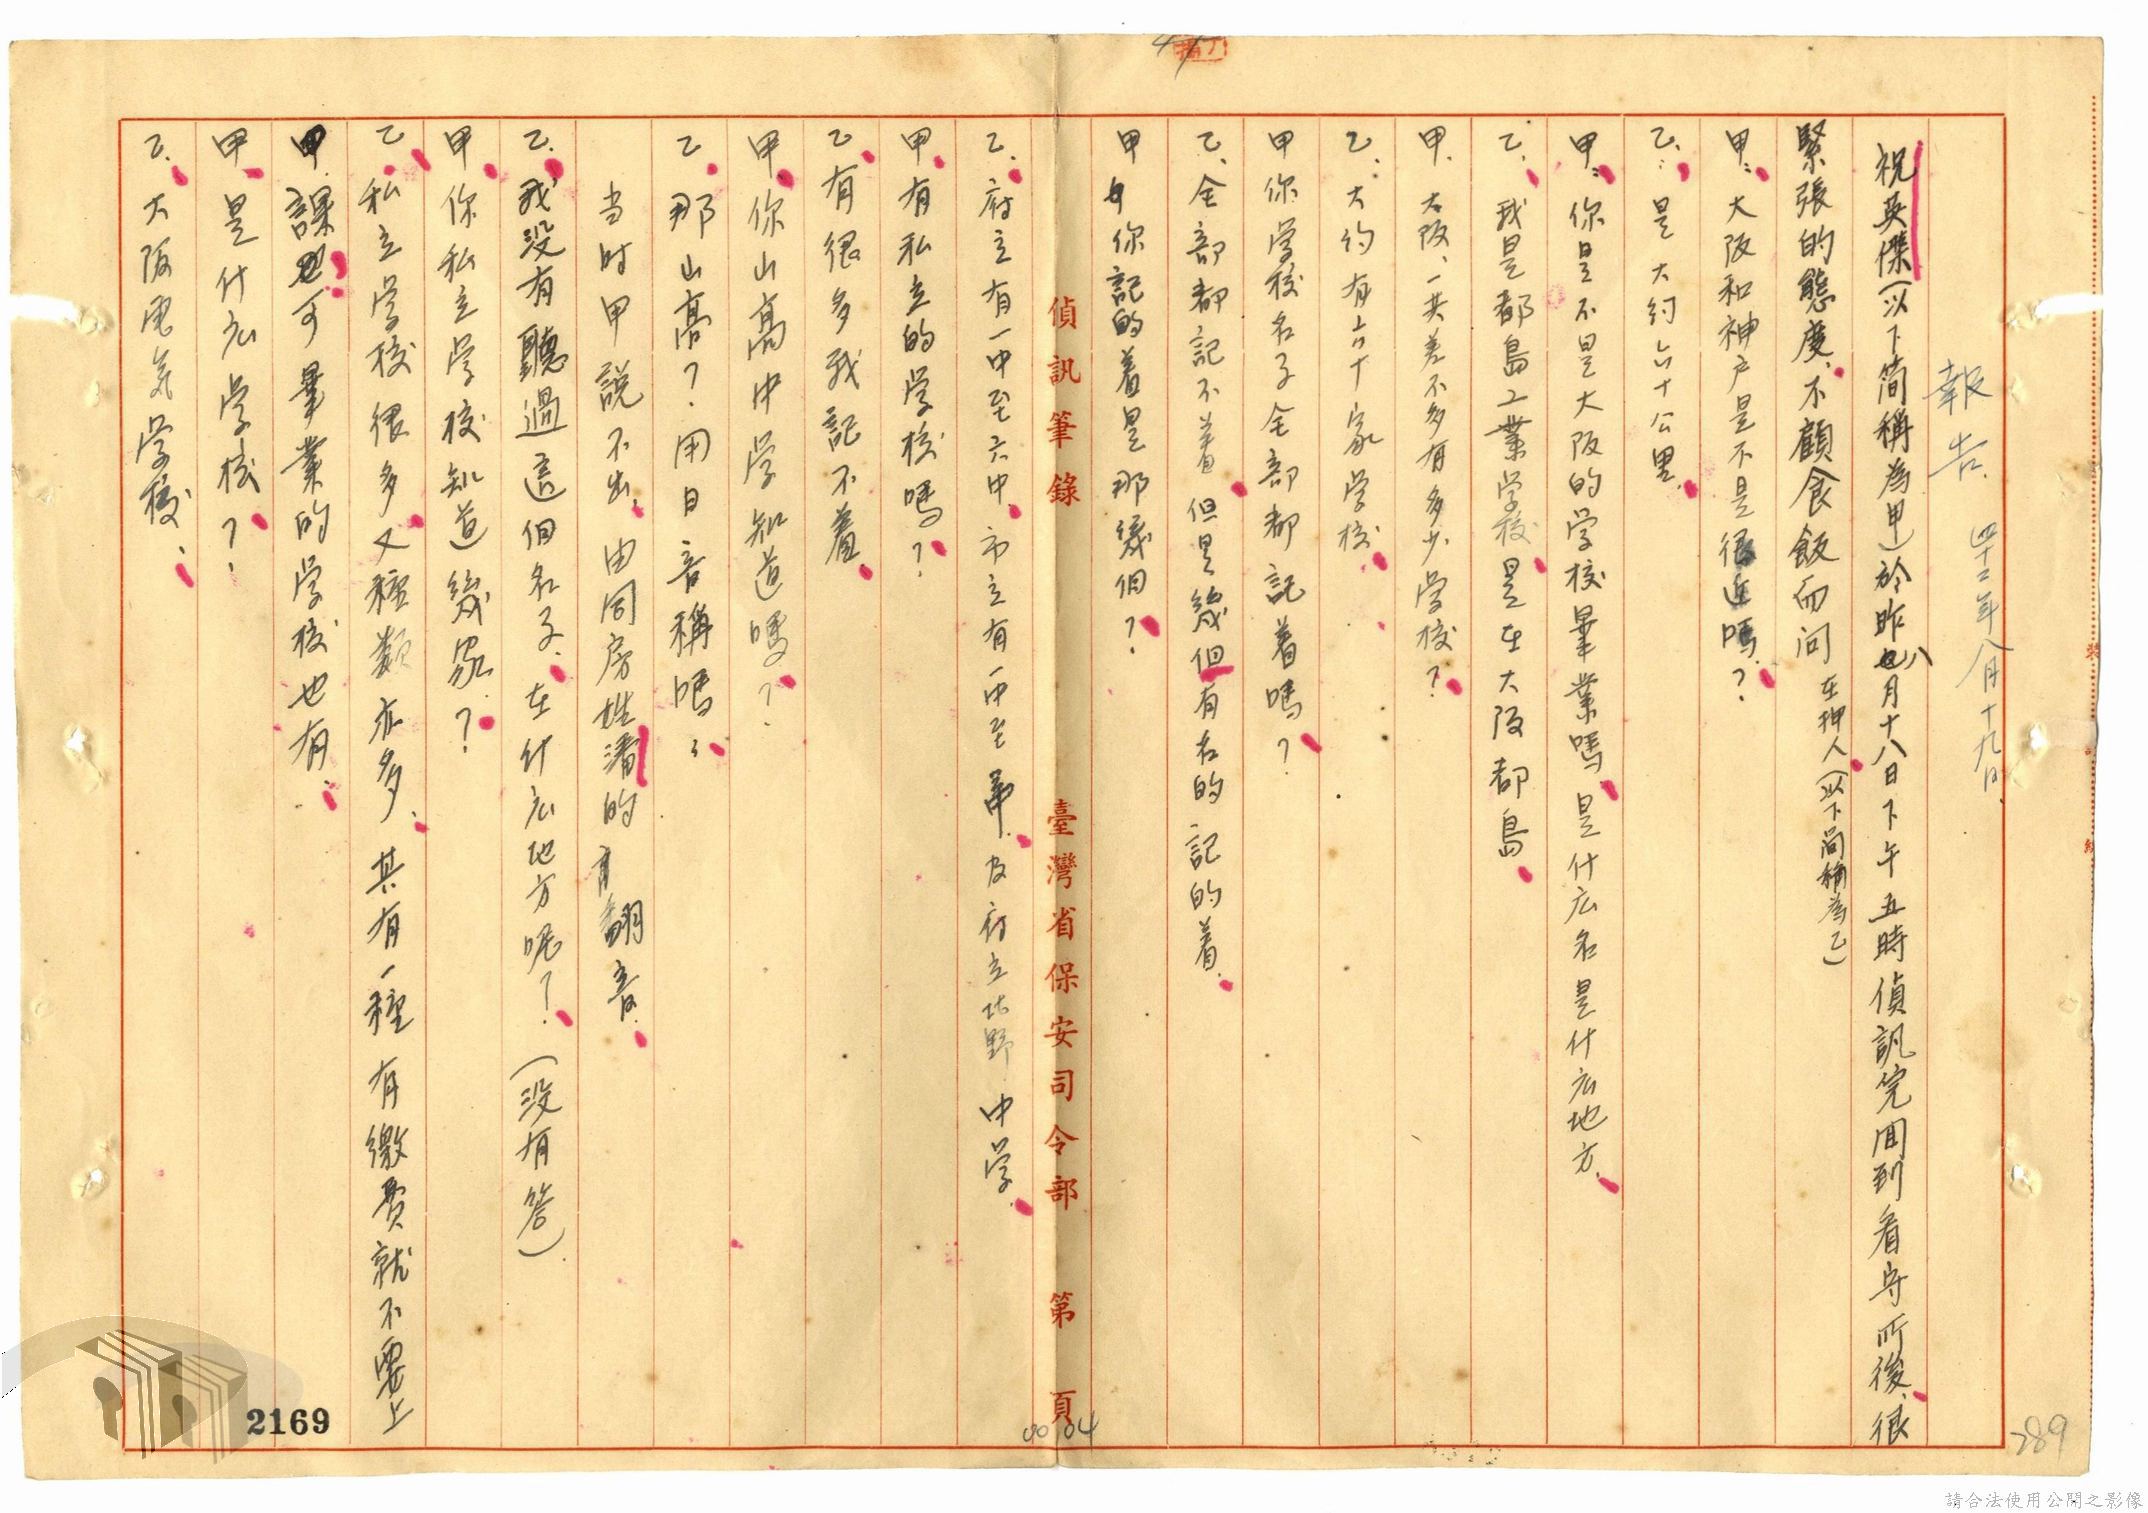 報告 四十二年八月十九日
祝英傑(以下简稱為甲)於昨八月十八日下午五時偵訊完囬到看守所後、很
緊張的態度、不顧食飯而问在押人(以下简稱為乙)
甲:大阪和神户是不是很近嗎?
乙:是大約六十公里、
甲:你是不是大阪的学校畢業嗎、是什広名是什広地方、
乙、我是都島工業学校、是在大阪都島、
甲、大阪、一共差不多有多少学校?
乙、大约有六十家学校、
甲你学校名子全部都記着嗎?
乙、全部都記不着、但是幾個有名的記的着、
甲你記的着是那幾個?
偵訊筆錄 臺灣省保安司令部 第 頁
乙、府立有一中至六中、市立有一中至 及府立北野中学、
甲、有私立的学校嗎?
乙有很多我記不着、
甲、你山高中学知道嗎?
乙、那山高?用日音稱嗎?
当时甲説不出、由同房姓潘的 翻音、
乙、我没有聽過這個名子、在什広地方呢?(没有答)
甲、你私立学校知道幾家?
乙、私立学校很多、又種類亦多、其有一種有繳費就不要上
課也可畢業的学校也有、
甲、是什広学校?
乙、大阪电気学校、
2169
0004
289
請合法使用公開之影像